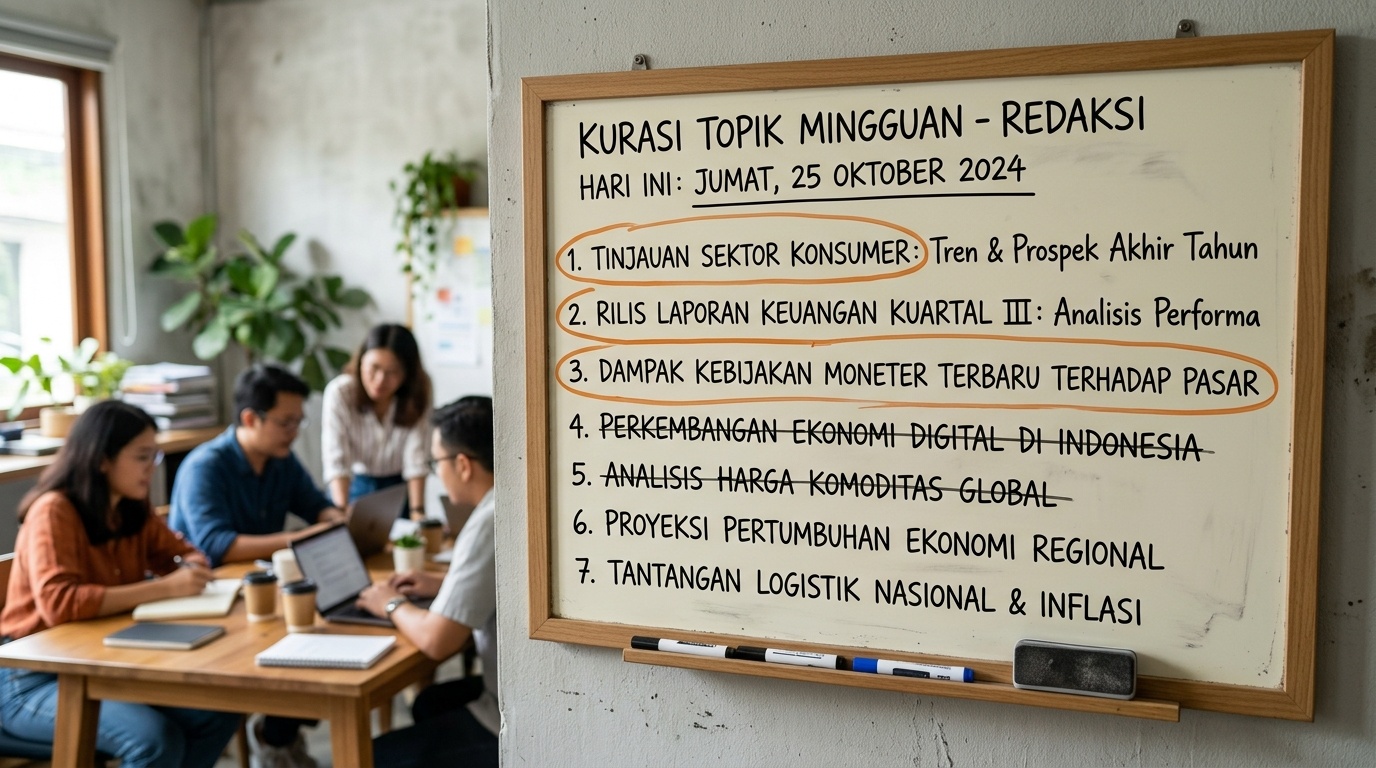 KURASI TOPIK MINGGUAN - REDAKSI
HARI INI: JUMAT, 25 OKTOBER 2024
1. TINJAUAN SEKTOR KONSUMER: Tren & Prospek Akhir Tahun
2. RILIS LAPORAN KEUANGAN KUARTAL III: Analisis Performa
3. DAMPAK KEBIJAKAN MONETER TERBARU TERHADAP PASAR
4. PERKEMBANGAN EKONOMI DIGITAL DI INDONESIA
5. ANALISIS HARGA KOMODITAS GLOBAL
6. PROYEKSI PERTUMBUHAN EKONOMI REGIONAL
7. TANTANGAN LOGISTIK NASIONAL & INFLASI